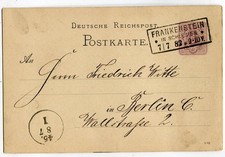 DEUTSCHE REICHSPOST
POSTKARTE.
FRANKENSTEIN
IN SCHLESIEN
7/7 83
An
Herrn Friedrich Witte
in Berlin C.
Wallstraße 2
1
8 7